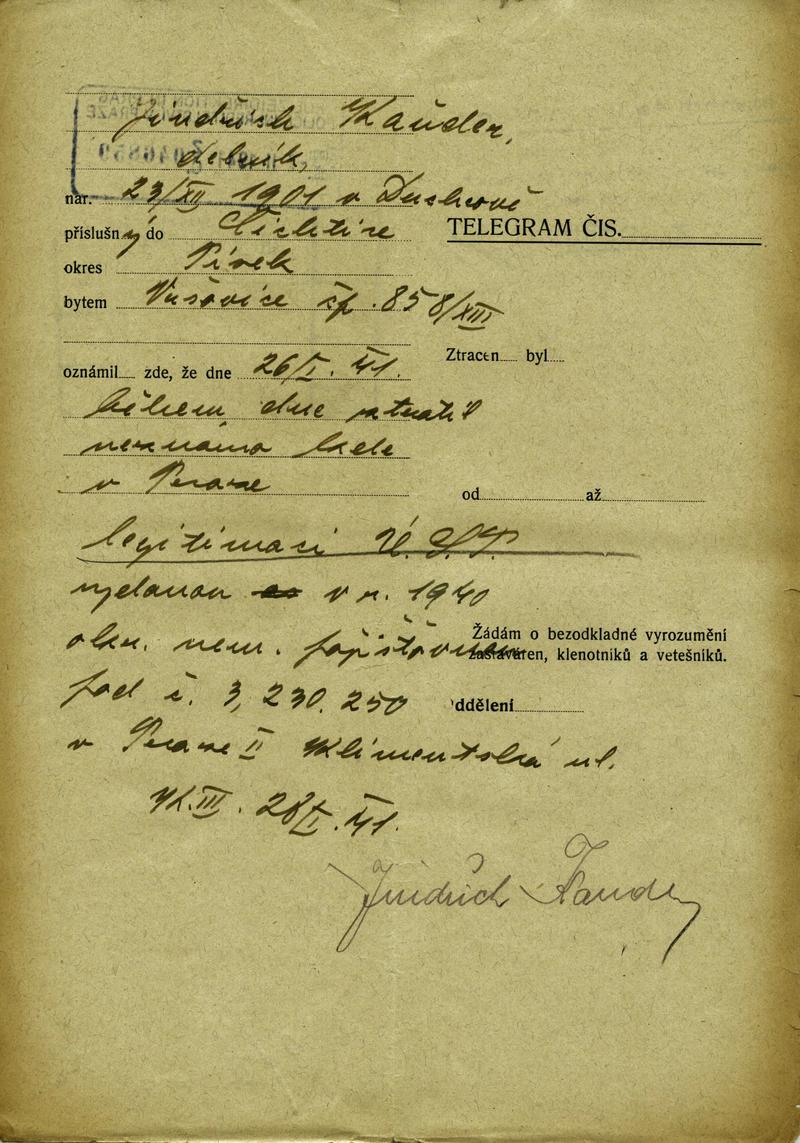 Jindřich Kauder,
dělník,
nar. 23/XII 1901 v Duchově
příslušný do Čichtice
TELEGRAM ČIS.
okres Písek
bytem Vršovice čp. 858/XIII
Ztracen byl
oznámil zde, že dne 26/I. 41.
během dne ztratil
neznámo kde
v Praze
od až
legitimaci Ú.S.P.
vydanou v r. 1940
okr. nem. pojišťovnou
Žádám o bezodkladné vyrozumění
zastaváren, klenotníků a vetešníků.
pod č. 3,230.250
ddělení
v Praze II Klimentská ul.
28/I. 41.
Jindřich Kauder